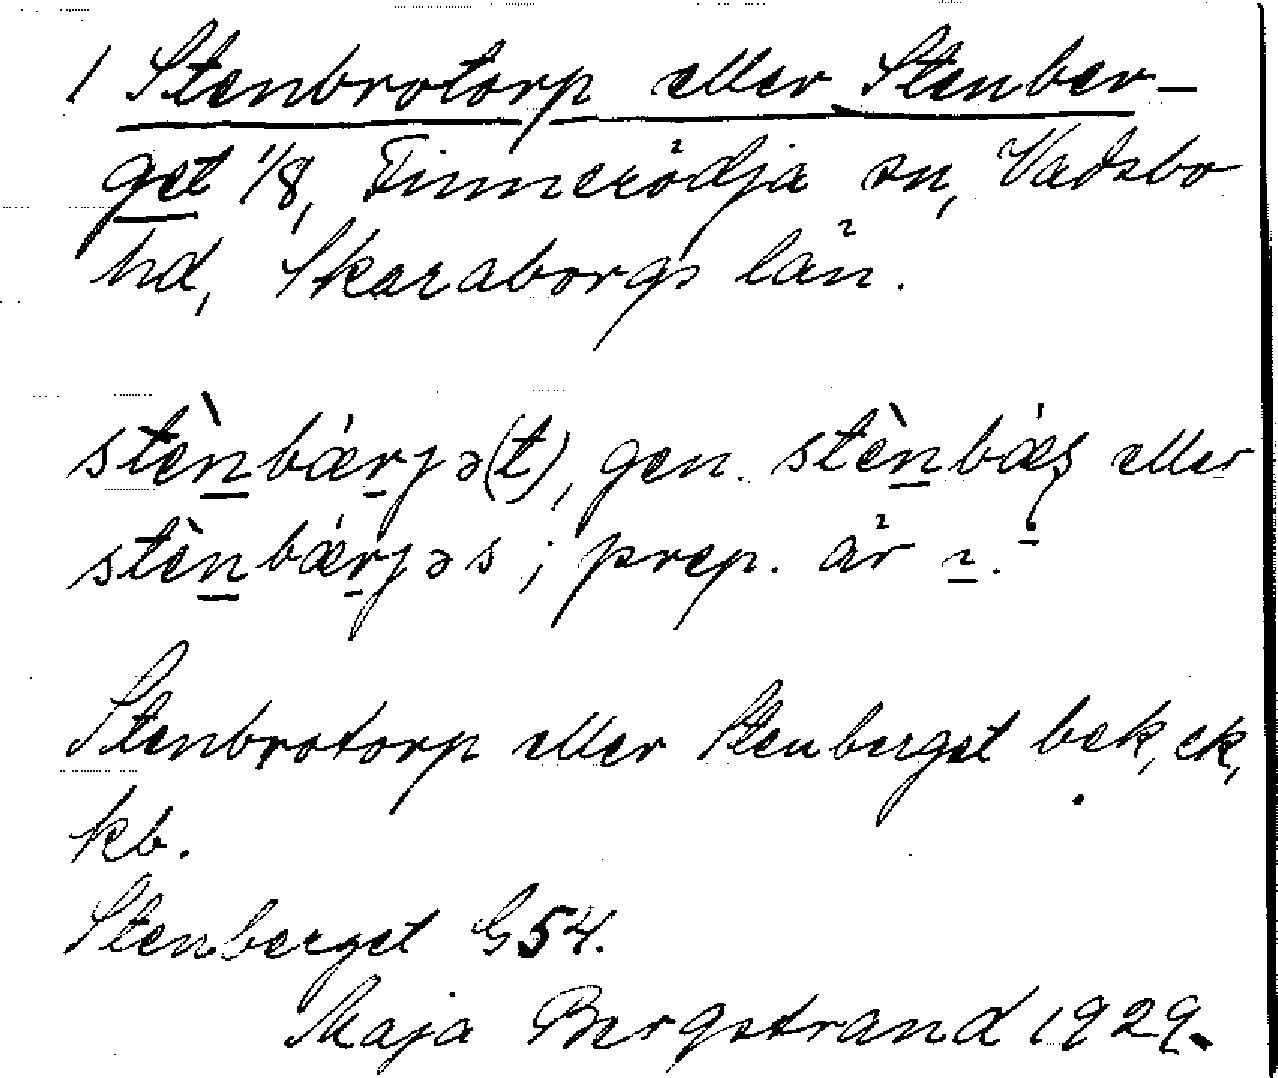 1 Stenbrotorp eller Stenber-
get 1/8, Tinnerödja sn, Vadsbo
hd, Skaraborgs län.
stènbǽrjə(t), gen. stènbǽş eller
stènbǽrjəs; prep. är i.
Stenbrotorp eller Stenberget bek, ek,
kb.
Stenberget G54.
Maja Bergstrand 1929.